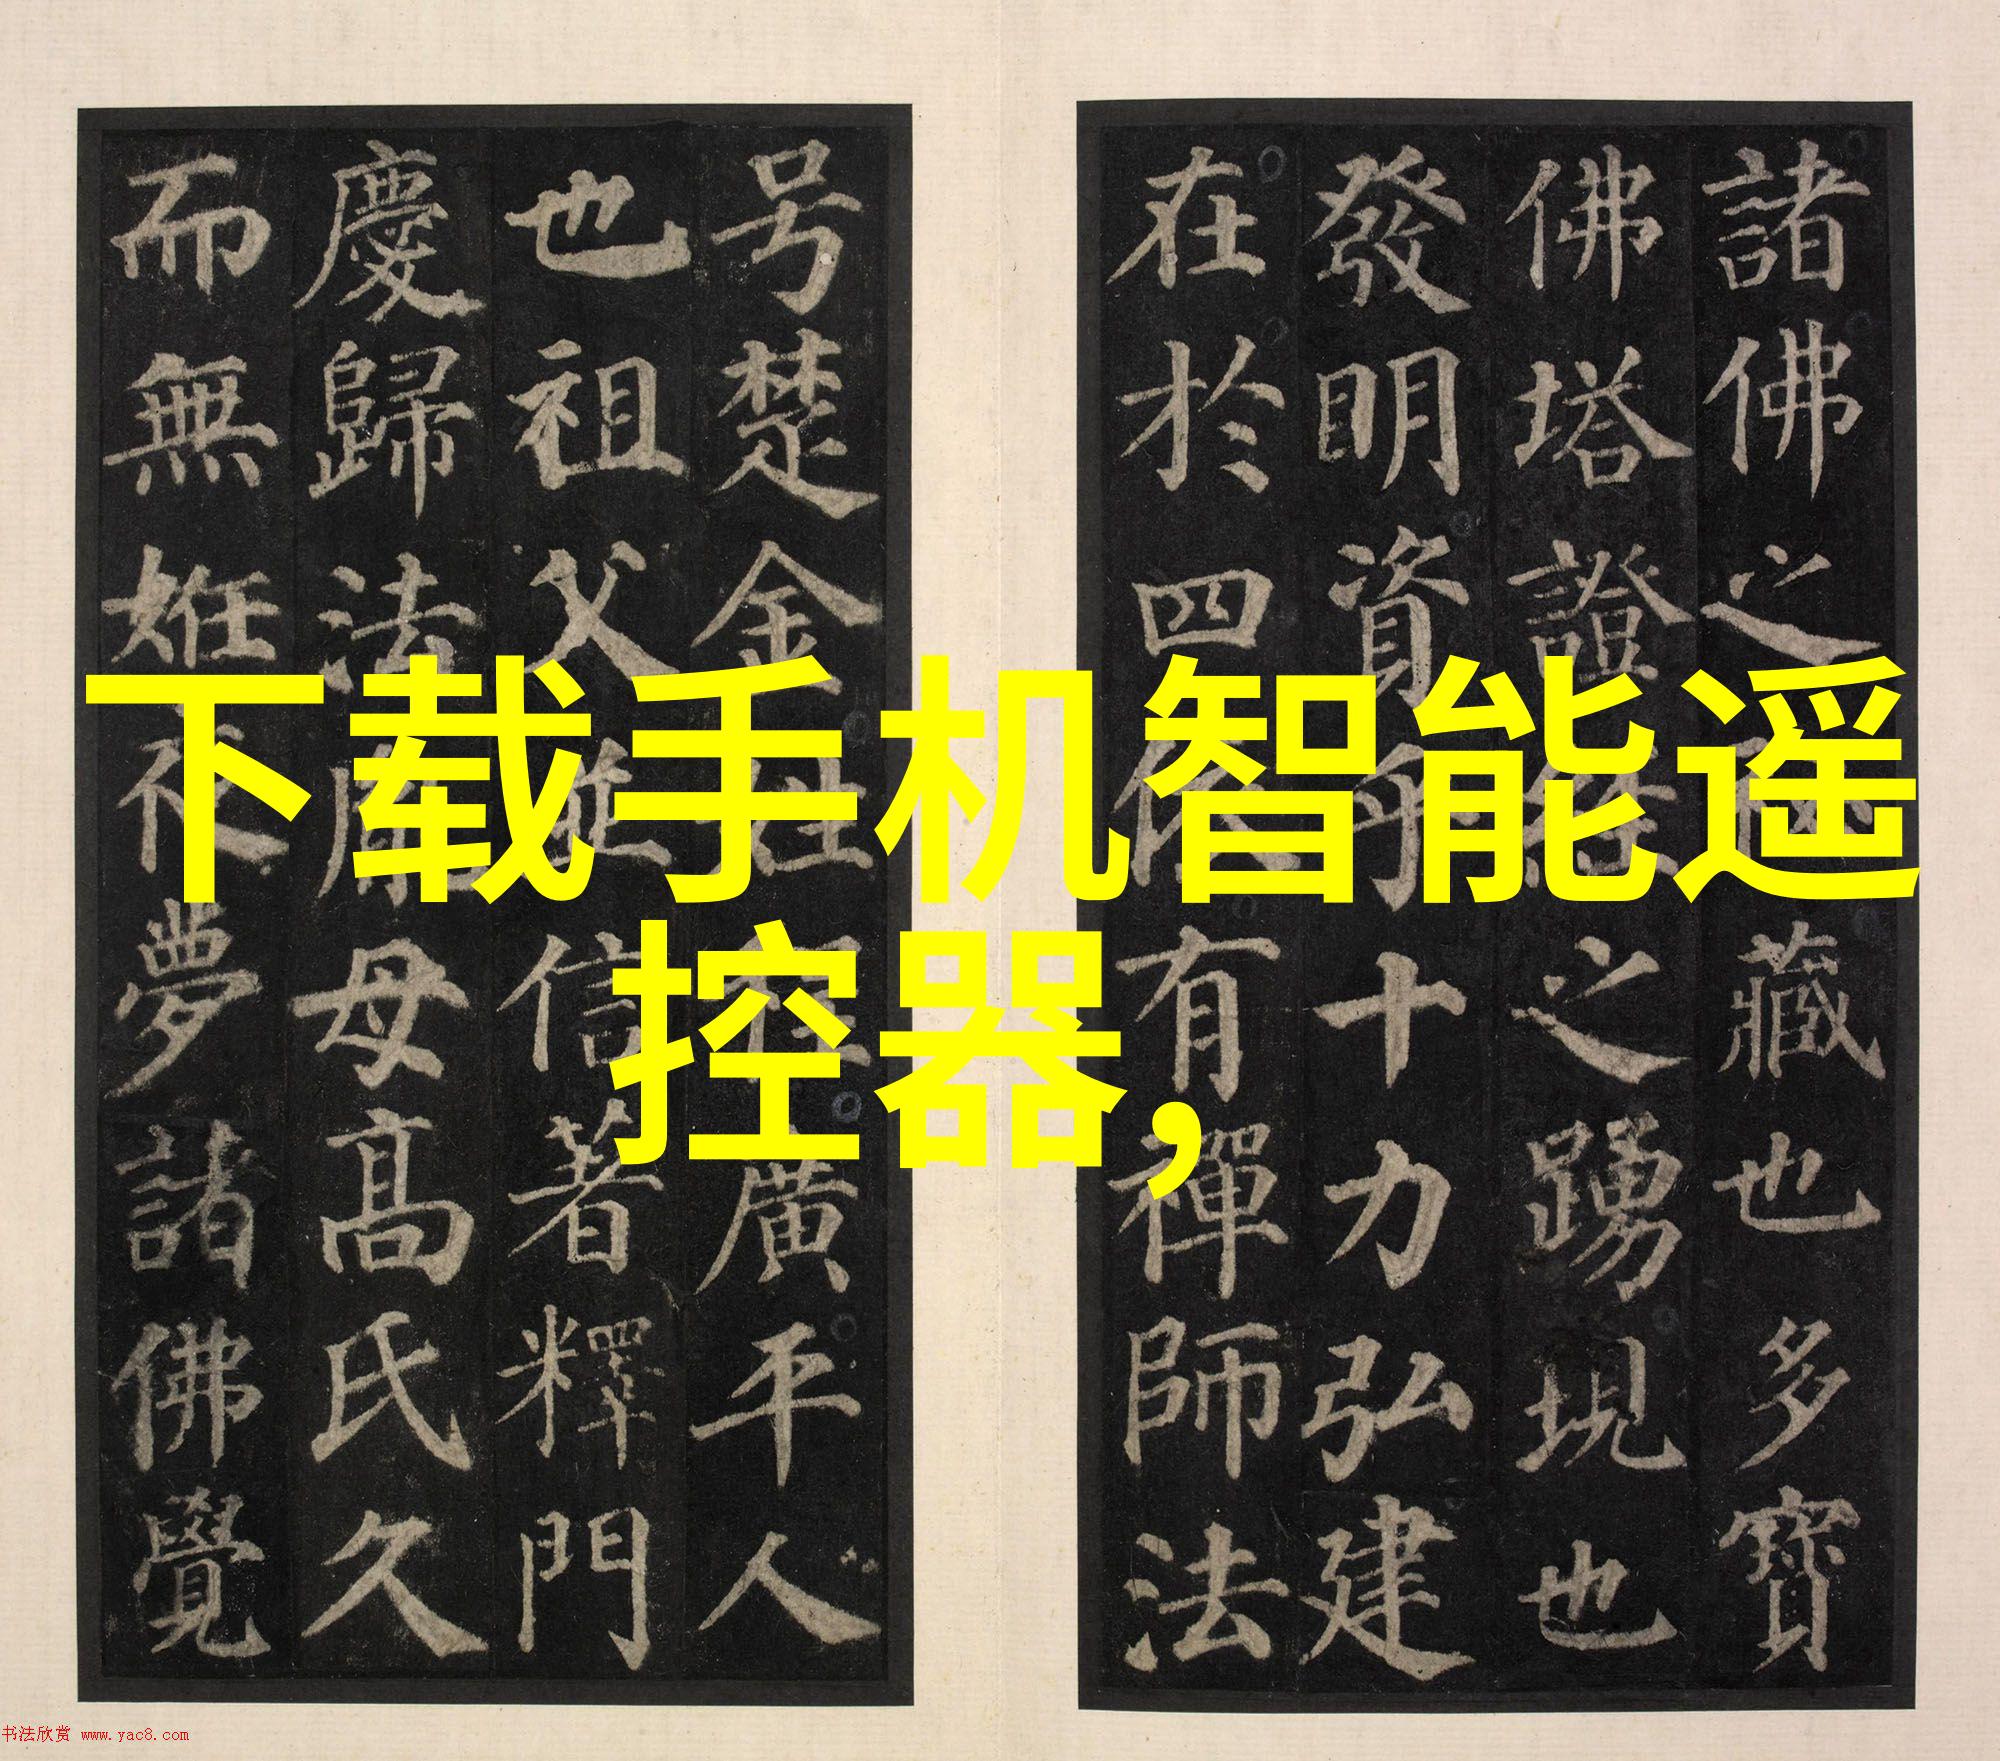 諸佛之祕藏也多寶
佛塔證經之踴現也
發明資乎十力弘建
在於四依有禪師法
号楚金姓程廣平人
也祖父並信著釋門
慶歸法胤母高氏久
而無姙夜夢諸佛覺
下载手机智能遥
控器,
书法欣赏 www.yac8.com